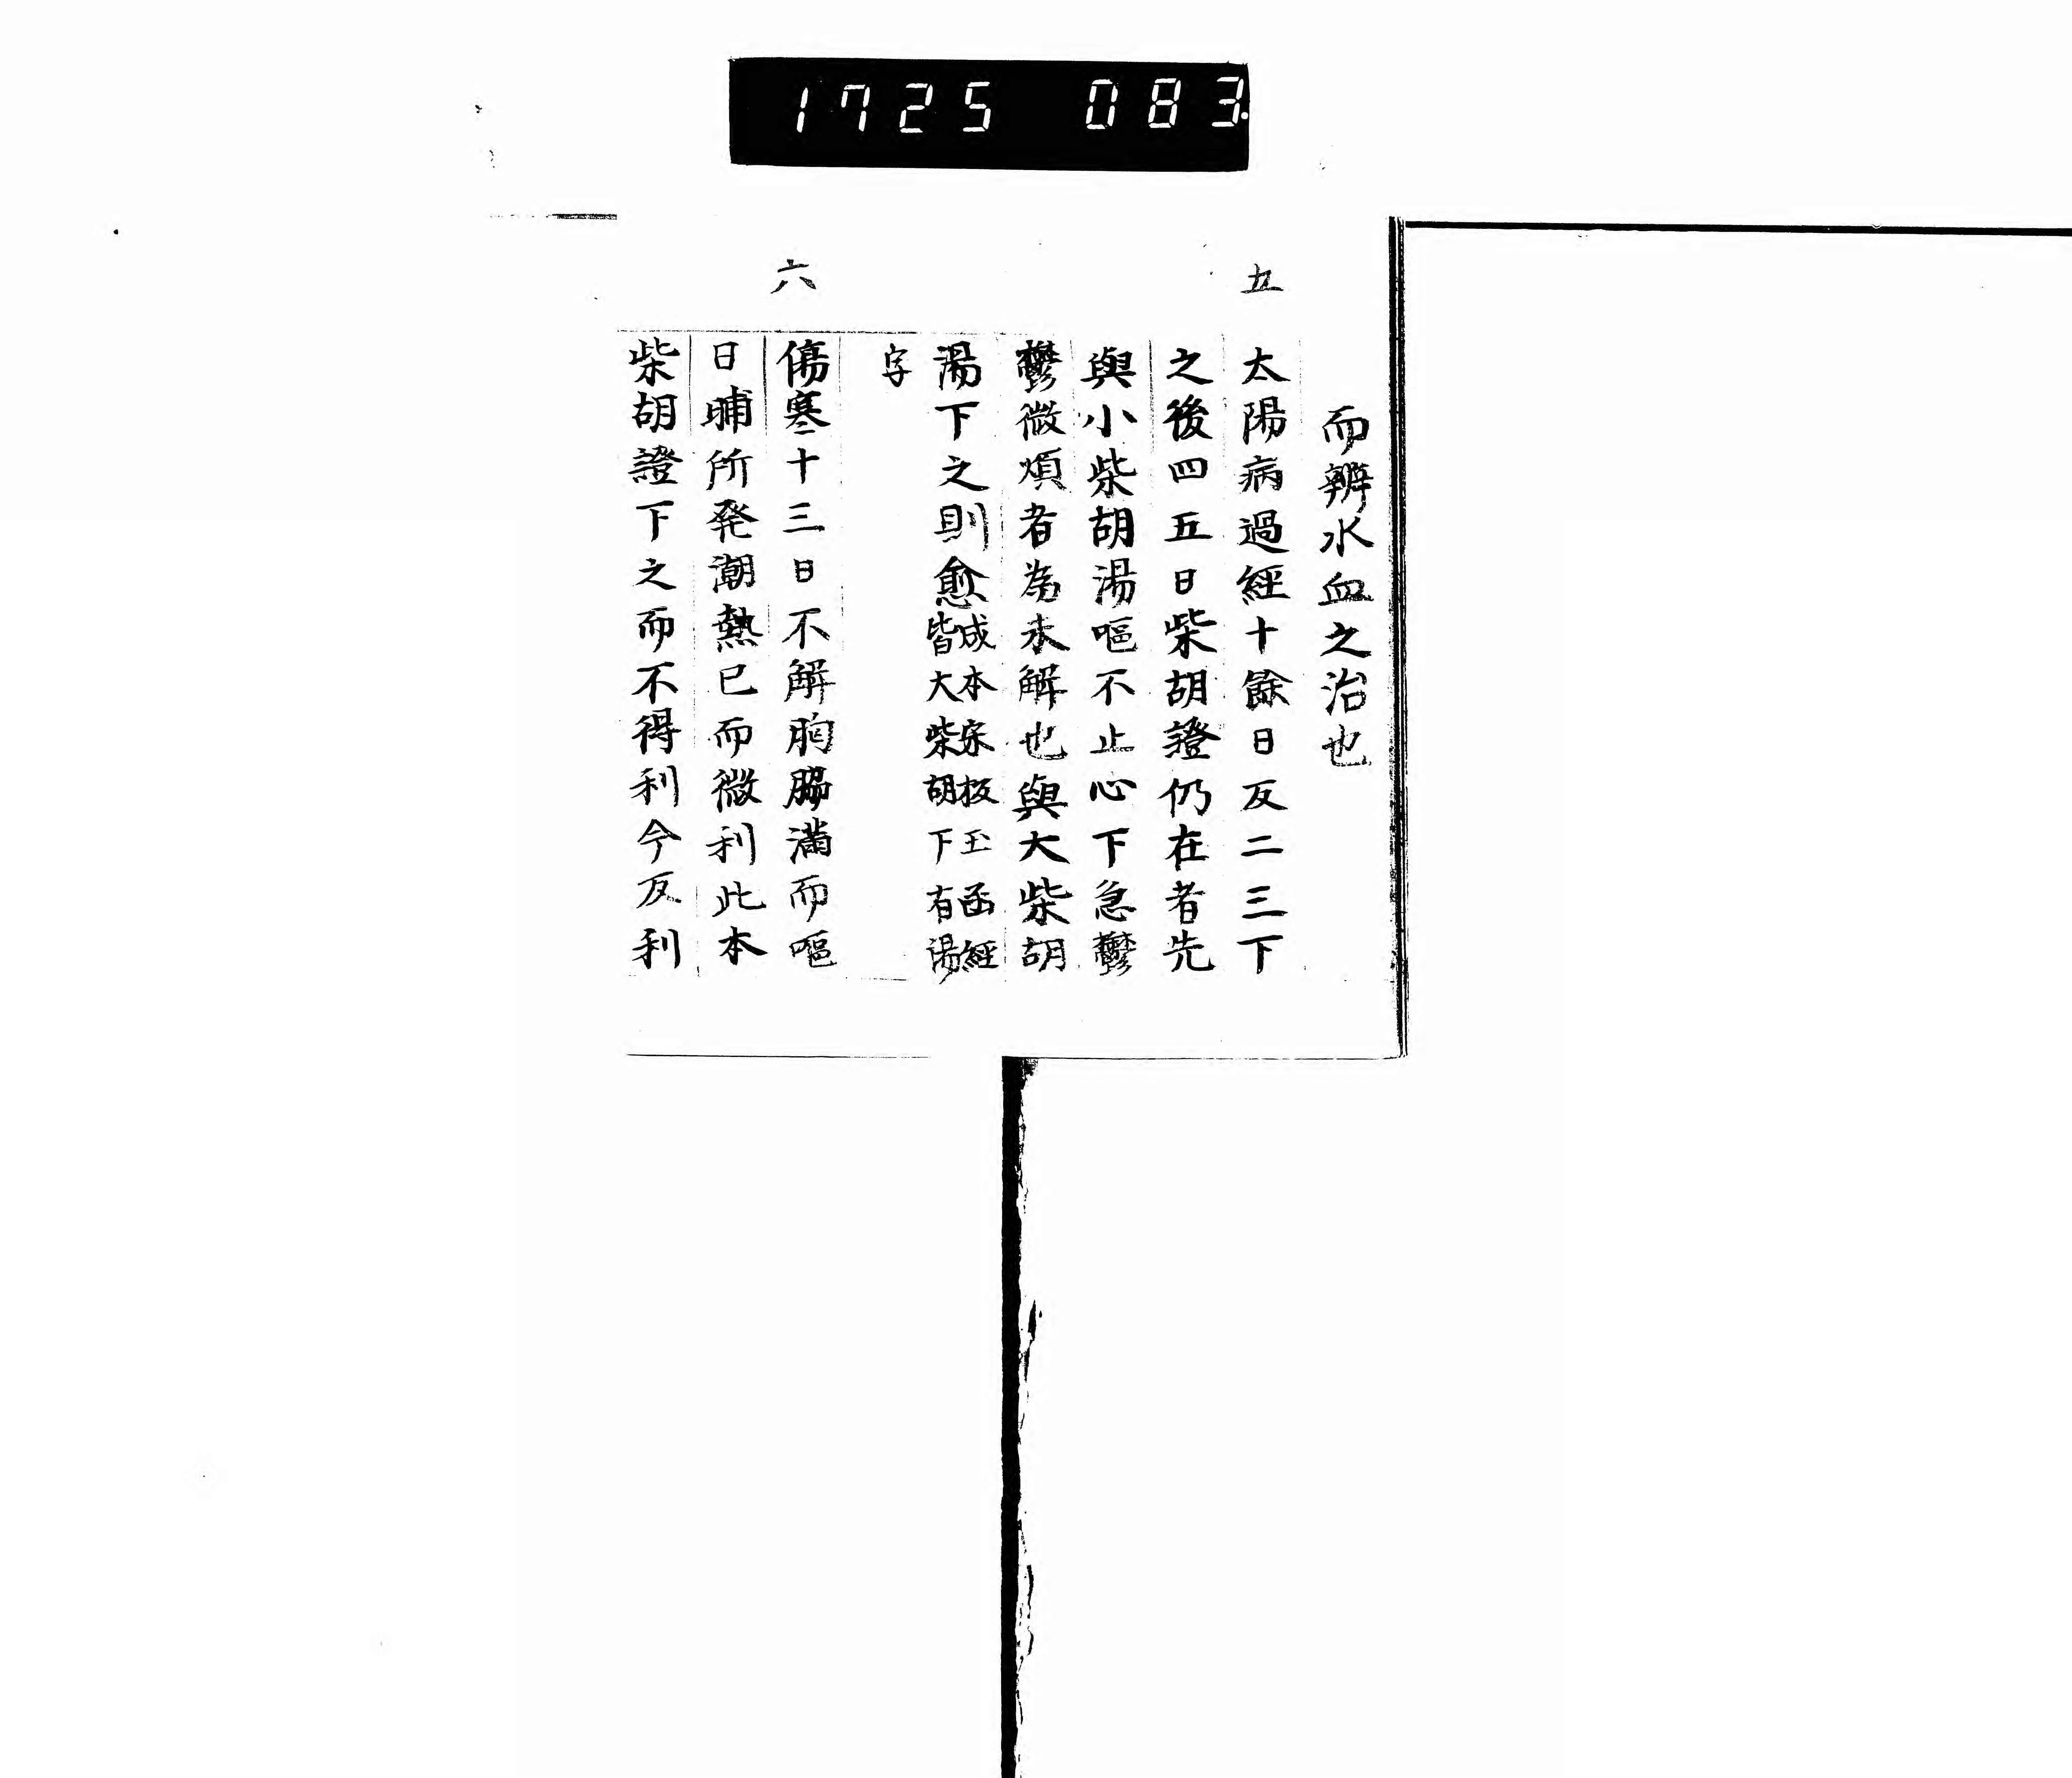 1725 083
而辨水血之治也
五
太陽病過經十餘日反二三下
之後四五日柴胡證仍在者先
與小柴胡湯嘔不止心下急鬱
鬱微煩者為未解也與大柴胡
湯下之則愈成本宋板玉函經
皆大柴胡下有湯
字
六
傷寒十三日不解胸脇滿而嘔
日晡所発潮熱已而微利此本
柴胡證下之而不得利今反利